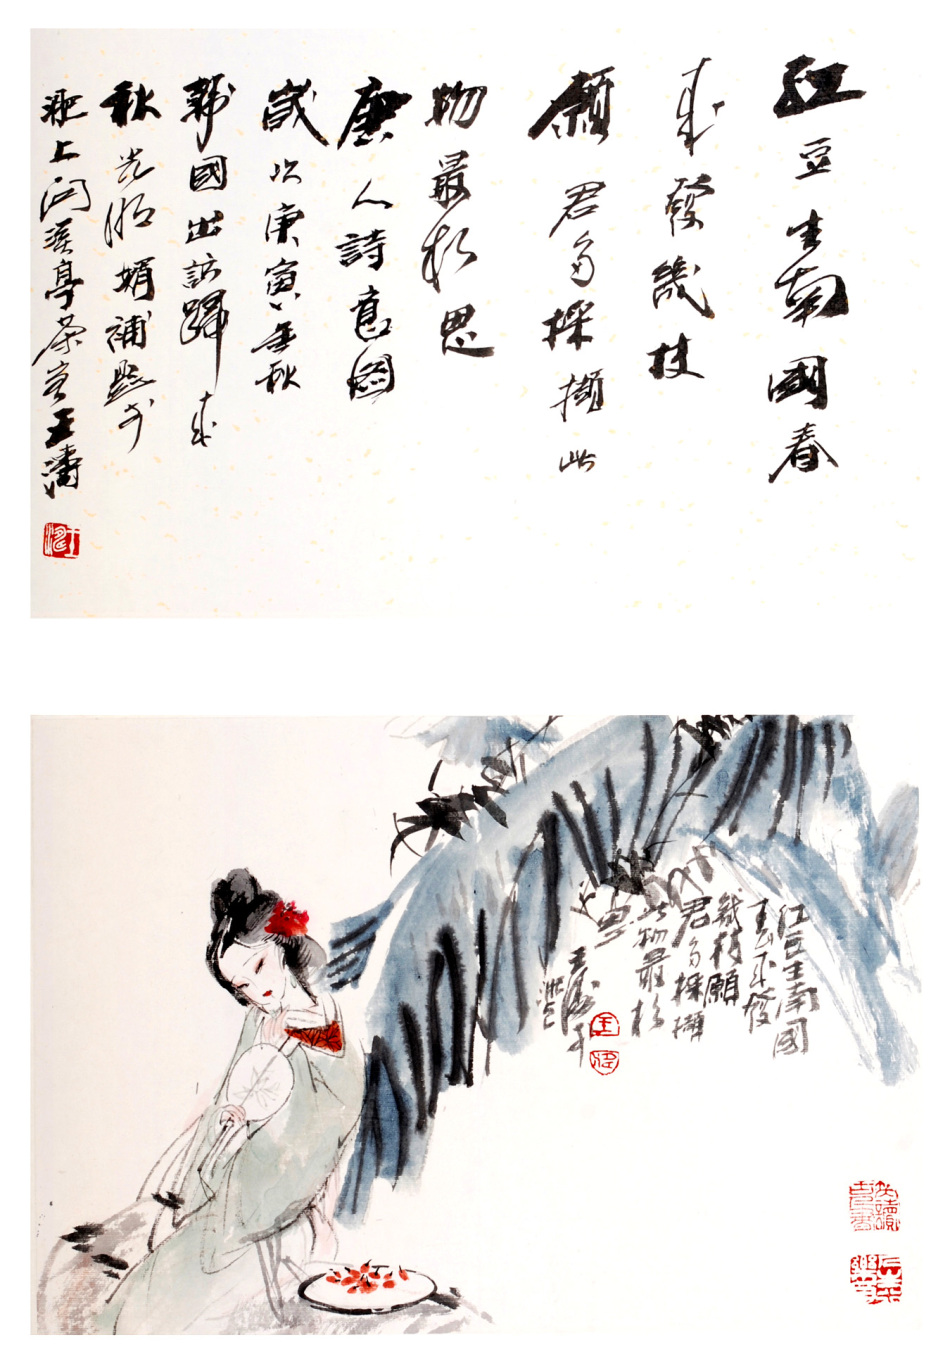 红豆生南國春
來發幾枝
願君多採擷此
物最相思
唐人詩意圖
歲次庚寅年秋
韓國出訪歸來
秋光明媚補題於
淝上溪亭茶室王濤
红豆生南國
春來發
幾枝願
君多採擷
此物最相
思
王涛
王